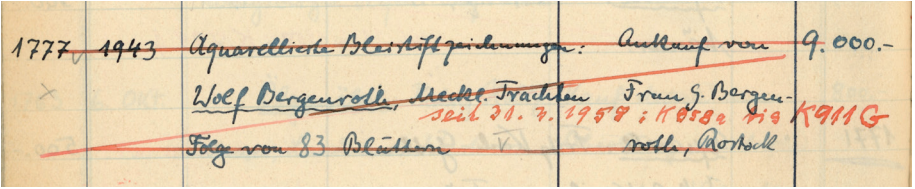 1777 1943 Aquarellierte Bleistiftzeichnungen: Ankauf von 9.000.-
Wolf Bergenroth, Meckl. Trachten Frau G. Bergen-
seit 21.7.1959: K858a bis K911G
Folge von 83 Blättern roth, Rostock